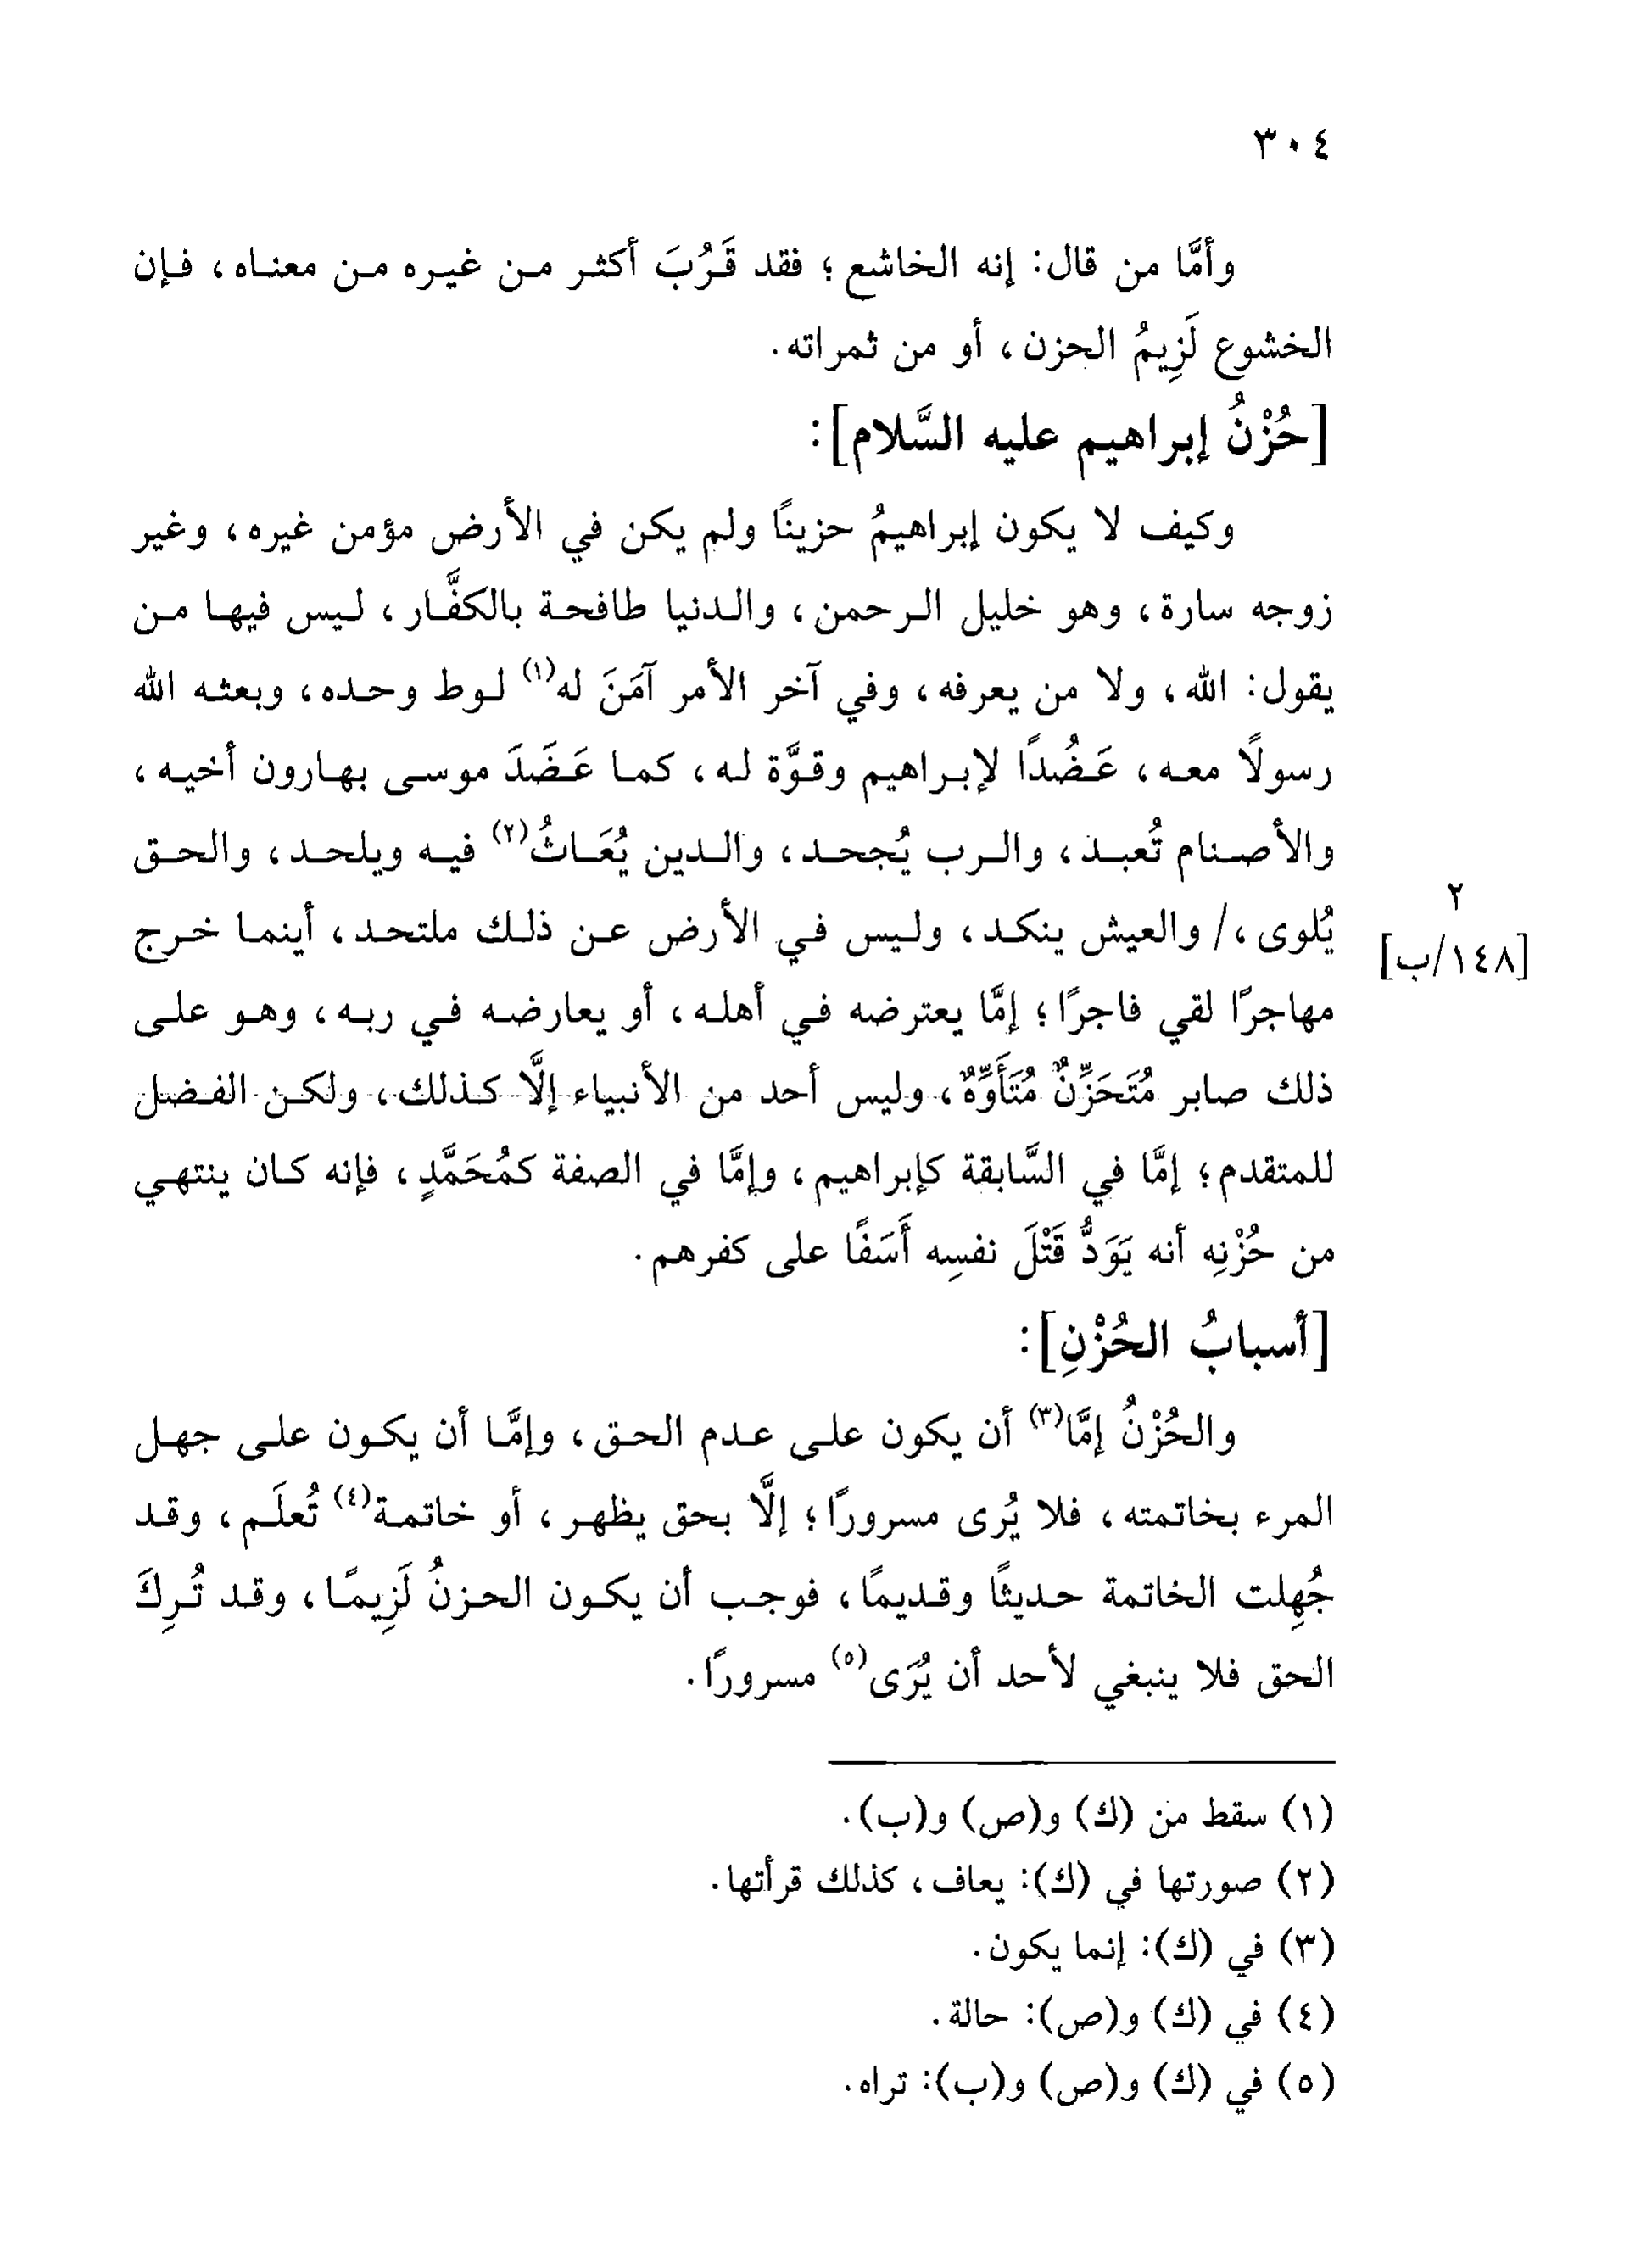 ٣٠٤
وأمَّا من قال: إنه الخاشع؛ فقد قَرُبَ أكثر من غيره من معناه، فإن
الخشوع لَزِيمُ الحزن، أو من ثمراته.
[حُزْنُ إبراهيم عليه السَّلام]:
وكيف لا يكون إبراهيمُ حزينًا ولم يكن في الأرض مؤمن غيره، وغير
زوجه سارة، وهو خليل الرحمن، والدنيا طافحة بالكفَّار، ليس فيها من
يقول: الله، ولا من يعرفه، وفي آخر الأمر آمَنَ له(١) لوط وحده، وبعثه الله
رسولًا معه، عَضُدًا لإبراهيم وقوَّة له، كما عَضَدَ موسى بهارون أخيه،
والأصنام تُعبد، والرب يُجحد، والدين يُعَاثُ(٢) فيه ويلحد، والحق
يُلوى،/ والعيش ينكد، وليس في الأرض عن ذلك ملتحد، أينما خرج
٢
[١٤٨/ب]
مهاجرًا لقي فاجرًا؛ إمَّا يعترضه في أهله، أو يعارضه في ربه، وهو على
ذلك صابر مُتَحَزِّنٌ مُتَأَوِّهٌ، وليس أحد من الأنبياء إلَّا كذلك، ولكن الفضل
للمتقدم؛ إمَّا في السَّابقة كإبراهيم، وإمَّا في الصفة كمُحَمَّدٍ، فإنه كان ينتهي
من حُزْنِه أنه يَوَدُّ قَتْلَ نفسِه أَسَفًا على كفرهم.
[أسبابُ الحُزْنِ]:
والحُزْنُ إمَّا(٣) أن يكون على عدم الحق، وإمَّا أن يكون على جهل
المرء بخاتمته، فلا يُرى مسرورًا؛ إلَّا بحق يظهر، أو خاتمة(٤) تُعلَم، وقد
جُهِلت الخاتمة حديثًا وقديمًا، فوجب أن يكون الحزنُ لَزِيمًا، وقد تُرِكَ
الحق فلا ينبغي لأحد أن يُرَى(٥) مسرورًا.
(١) سقط من (ك) و(ص) و(ب).
(٢) صورتها في (ك): يعاف، كذلك قرأتها.
(٣) في (ك): إنما يكون.
(٤) في (ك) و(ص): حالة.
(٥) في (ك) و(ص) و(ب): تراه.